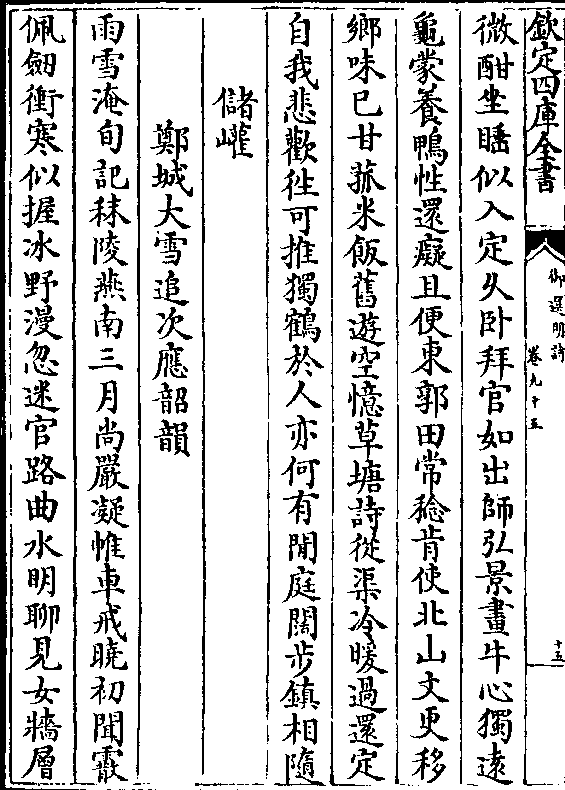 欽定四庫全書
御選明詩
卷九十五
十五
微酣坐睡似入定久卧拜官如出師弘景畫牛心獨逺
龜蒙養鴨性還癡且便東郭田常稔肯使北山文更移
鄉味已甘菰米飯舊遊空憶草塘詩從渠冷暖過還定
自我悲歡徃可推獨鶴於人亦何有閒庭闊步鎮相隨
儲巏
鄭城大雪追次應韶韻
雨雪淹旬記秣陵燕南三月尚嚴凝帷車戒曉初聞霰
佩劒衝寒似握冰野漫忽迷官路曲水明聊見女牆層